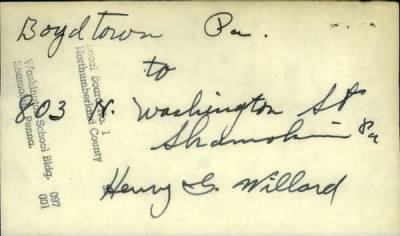 Boydtown Pa.
to
803 N. Washington St
Shamokin Pa
Henry G. Willard
Local Board No. 1
Northumberland County
Washington School Bldg.
Shamokin, Penna.
097
001